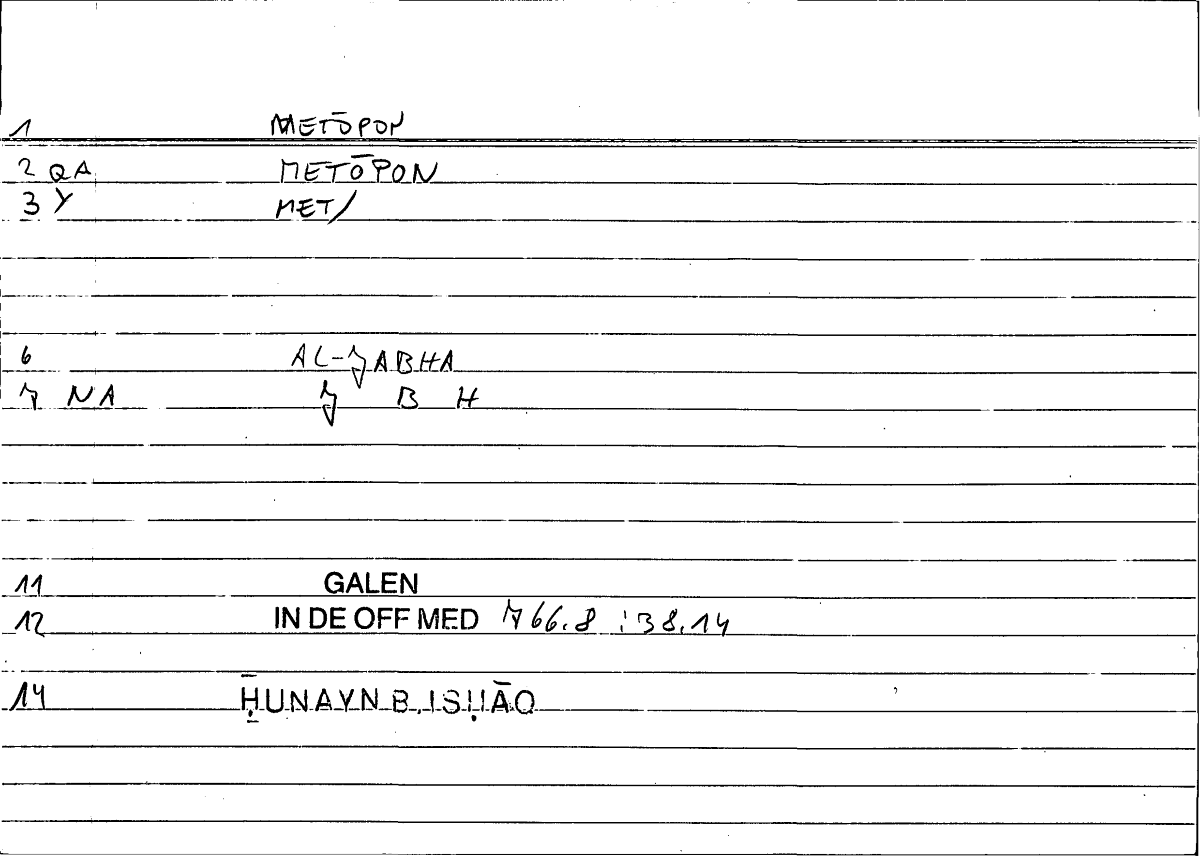 1 METŌPON
2 QA METŌPON
3 Y MET/
6 AL-J̌ABHA
7 NA J̌ B H
11 GALEN
12 IN DE OFF MED 766.8 :38.14
14 ḤUNAYN B. ISḤĀQ